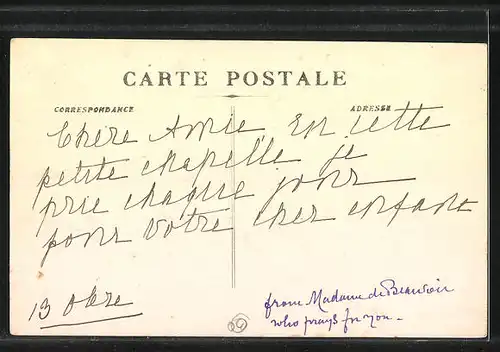 CARTE POSTALE
CORRESPONDANCE
ADRESSE
Chère Amie, En cette
petite chapelle je
prie chaque jour
pour votre cher enfant
13 obre
from Madame de Beauvoir
who prays for you -